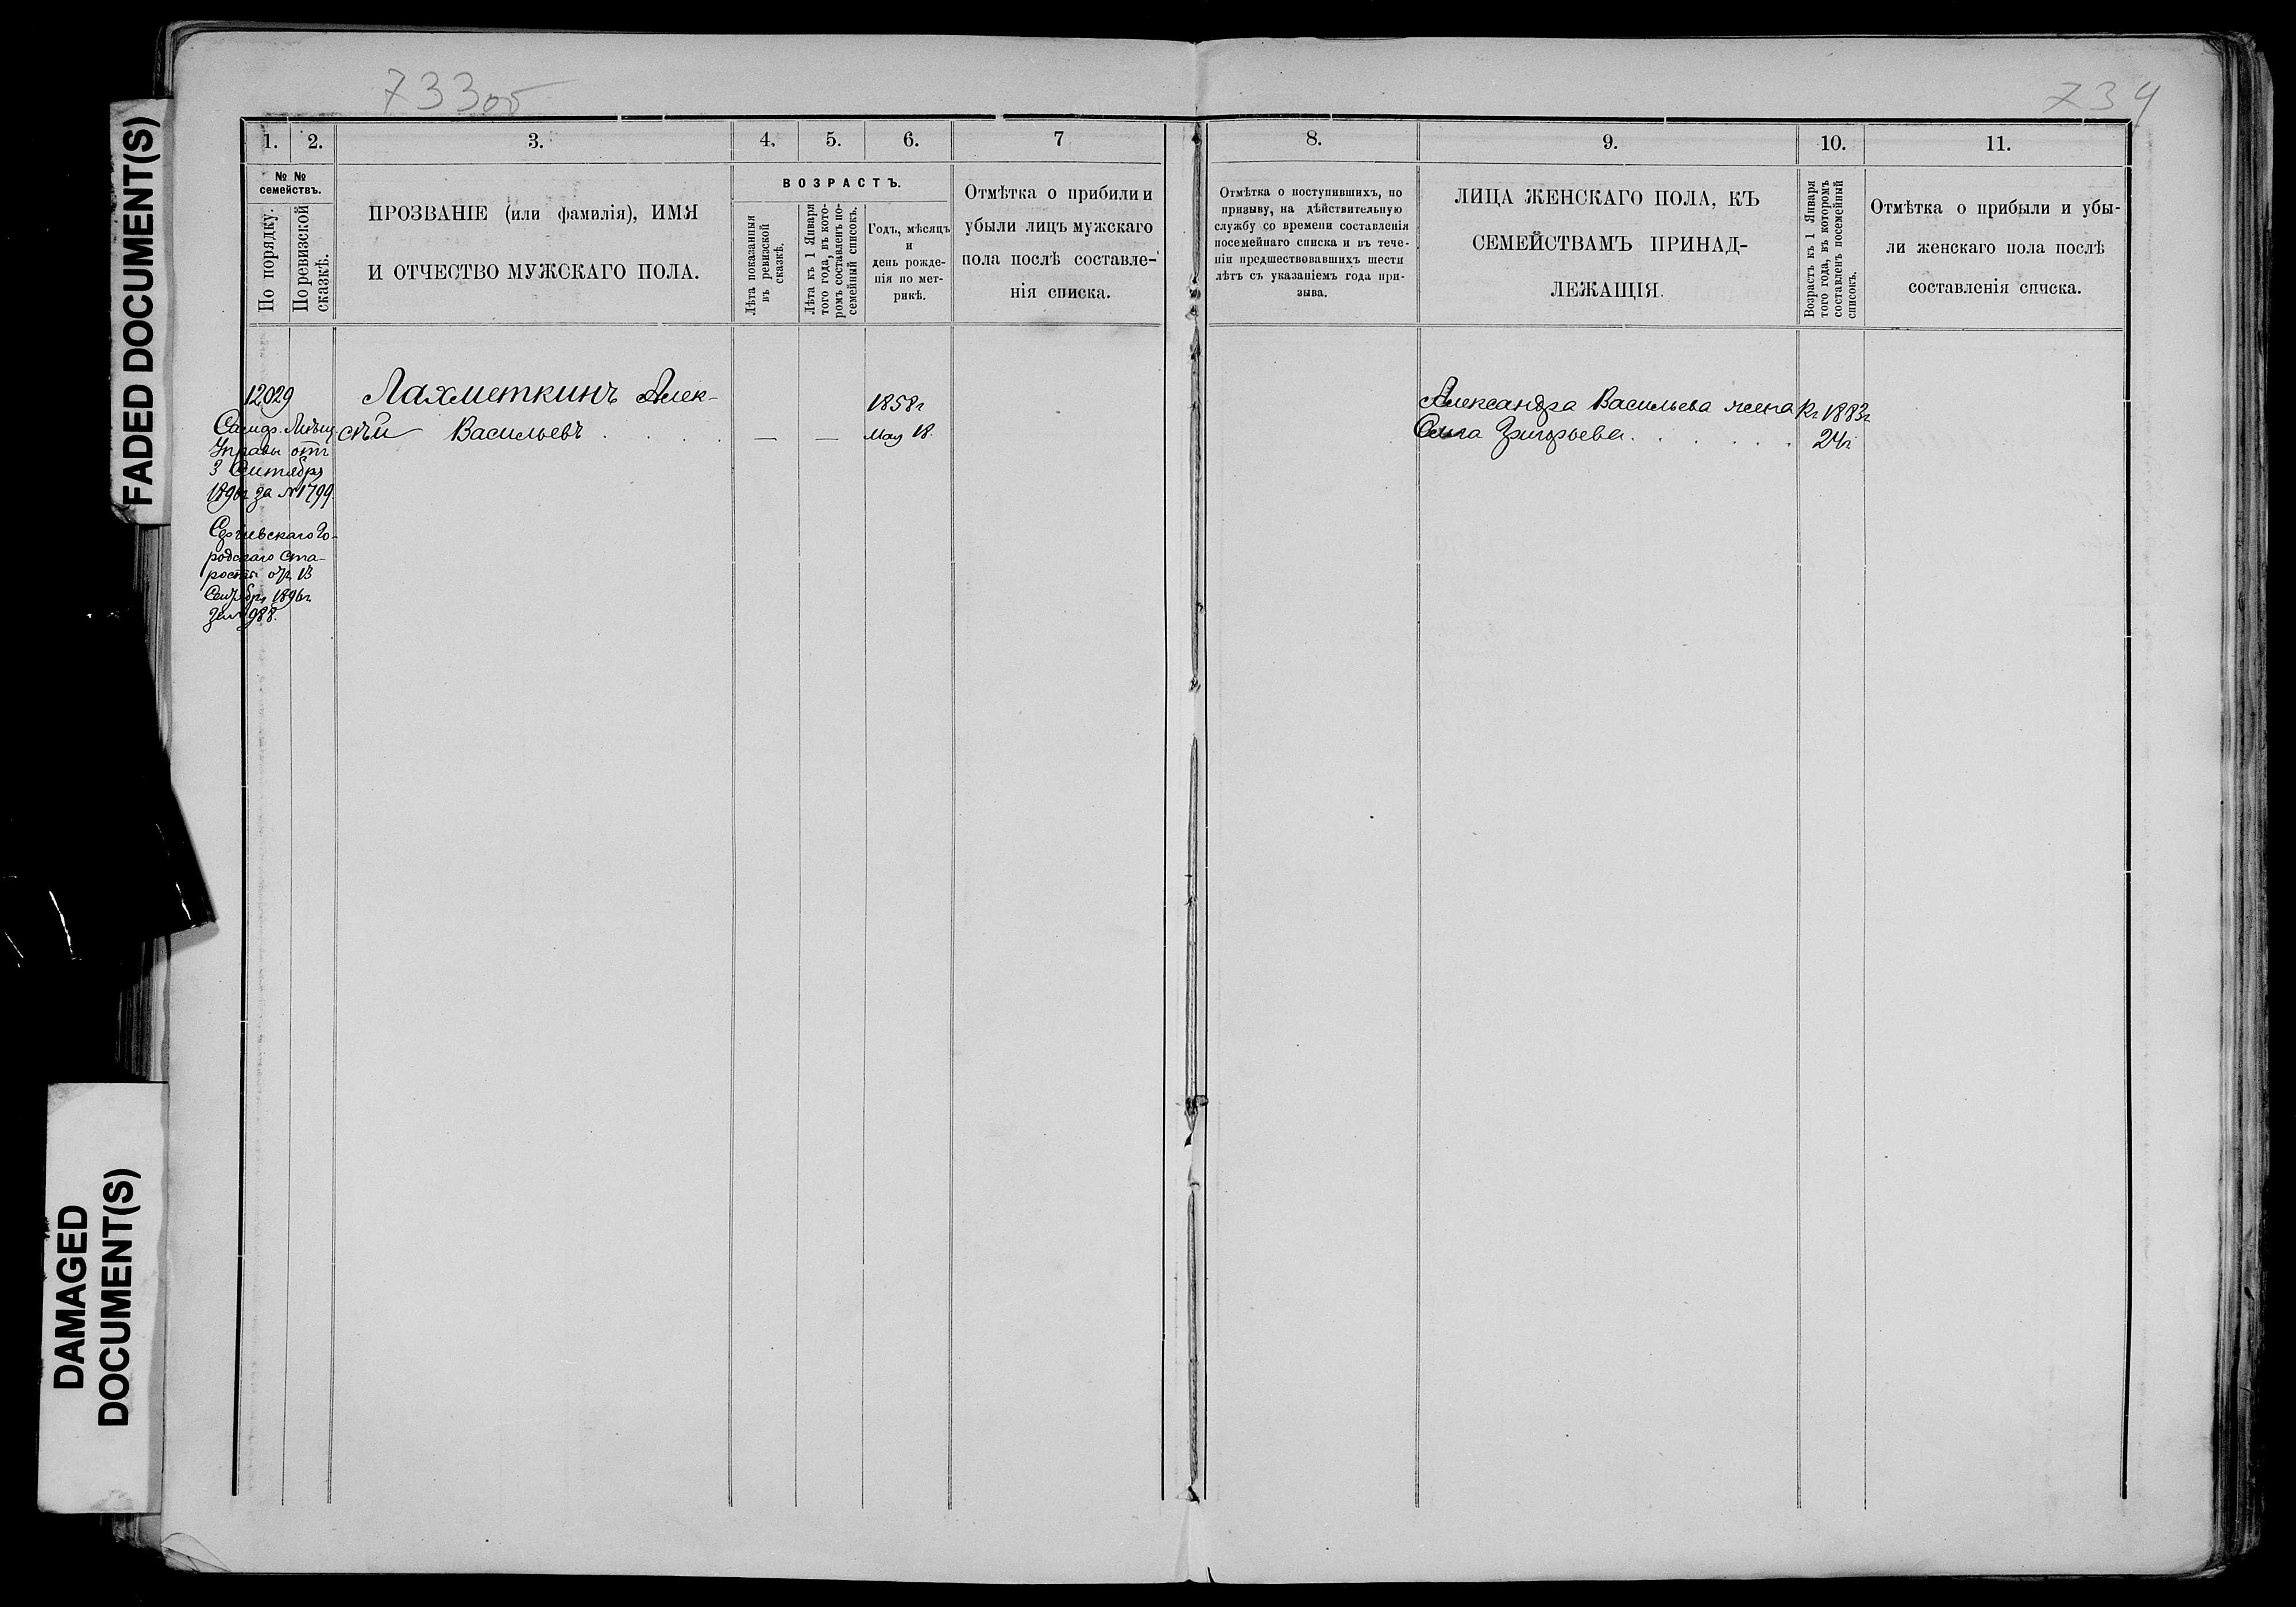 FADED DOCUMENT(S)
DAMAGED
DOCUMENT(S)
733об
1. 2. 3. 4. 5. 6. 7
№ №
семействъ.
По порядку.
По ревизской
сказкѣ.
ПРОЗВАНІЕ (или фамилія), ИМЯ
И ОТЧЕСТВО МУЖСКАГО ПОЛА.
ВОЗРАСТЪ.
Лѣта показанныя
въ ревизской
сказкѣ.
Лѣта къ 1 Января
того года, въ кото-
ромъ составленъ по-
семейный списокъ.
Годъ, мѣсяцъ
и
день рожде-
нія по мет-
рикѣ.
Отмѣтка о прибили и
убыли лицъ мужскаго
пола послѣ составле-
нія списка.
12029
Самар. Мѣщ.
Управы отъ
3 Сентября
1896г за №1799
Сергіевскаго Го-
родскаго Ста-
росты отъ 18
Сентября 1896г
за № 988.
Лахметкинъ Алек-
сѣй Васильевъ . . . . — —
1858г
Мая 18.
734
8. 9. 10. 11.
Отмѣтка о поступившихъ, по
призыву, на дѣйствительную
службу со времени составленія
посемейнаго списка и въ тече-
ніи предшествовавшихъ шести
лѣтъ съ указаніемъ года при-
зыва.
ЛИЦА ЖЕНСКАГО ПОЛА, КЪ
СЕМЕЙСТВАМЪ ПРИНАД-
ЛЕЖАЩІЯ.
Возрастъ къ 1 Января
того года, въ которомъ
составленъ посемейный
списокъ.
Отмѣтка о прибыли и убы-
ли женскаго пола послѣ
составленія списка.
Александра Васильева жена 1883г
Григорьева . . . . . 24г